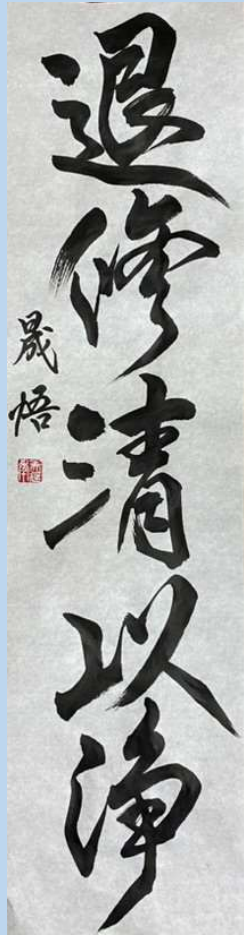 退修清以净
晟悟